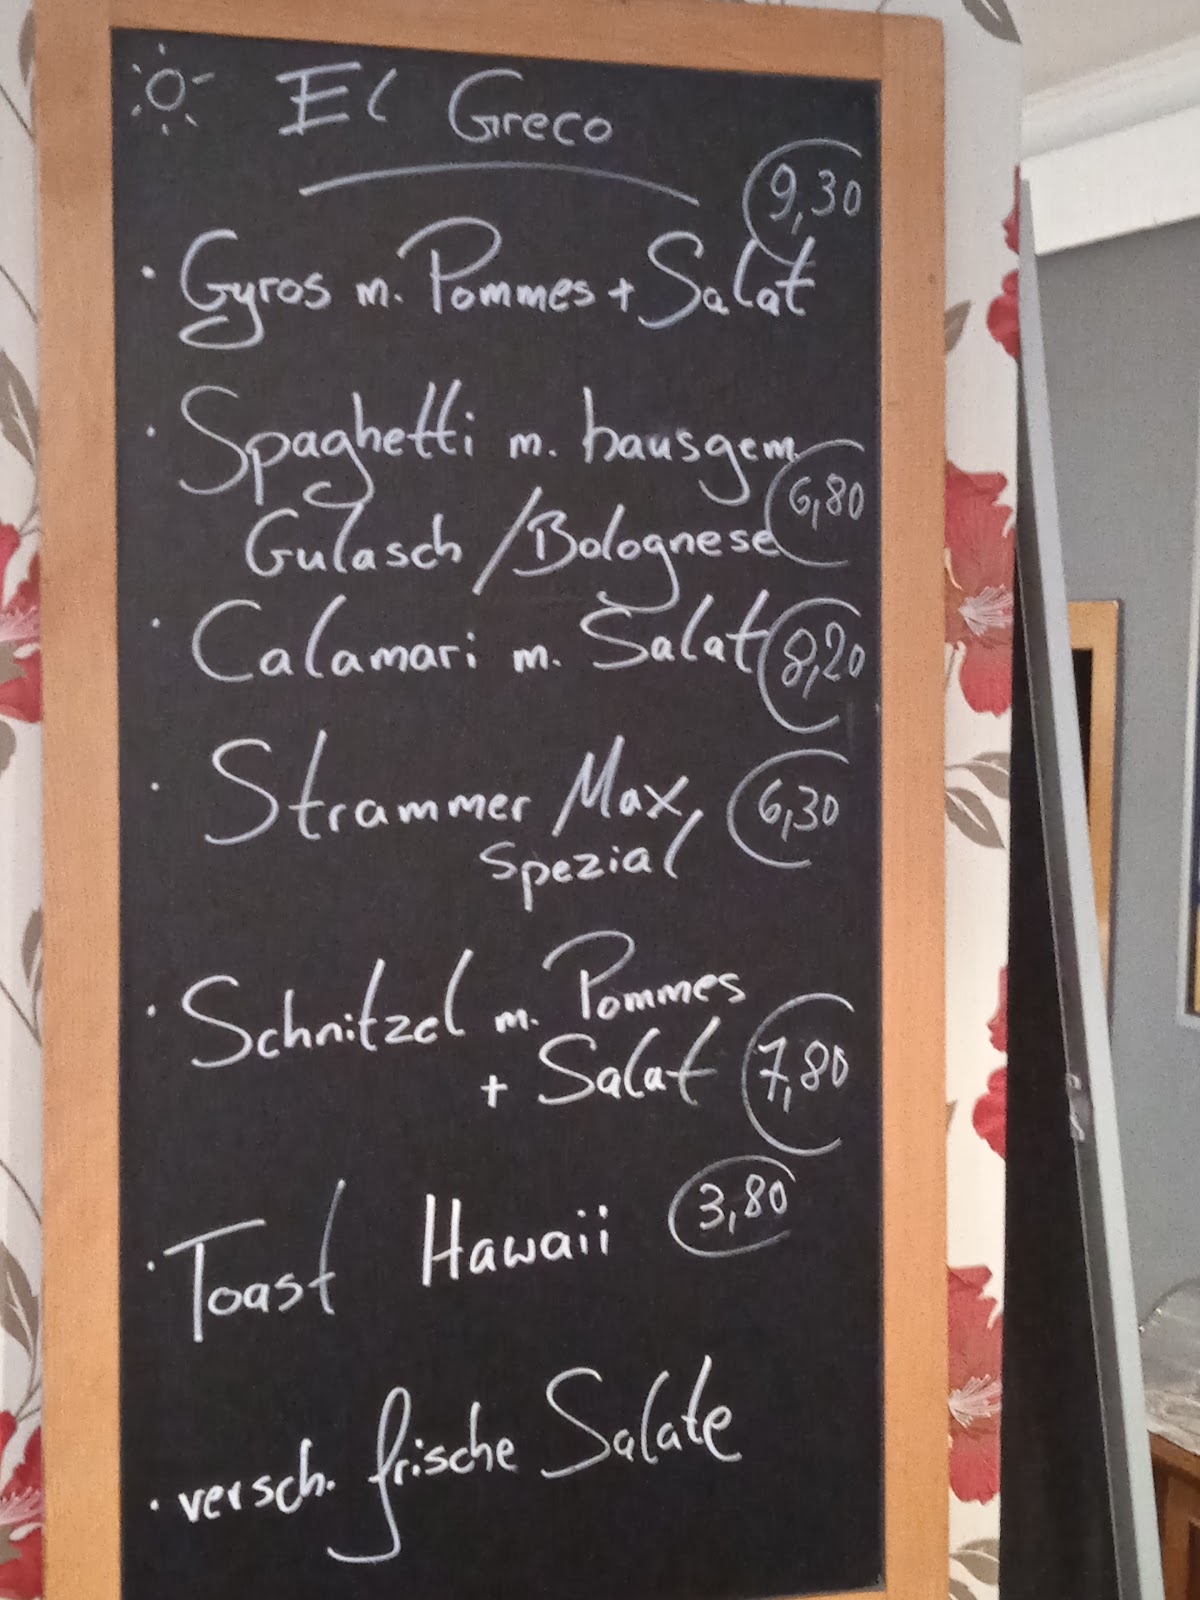 El Greco
9,30
· Gyros m. Pommes + Salat
· Spaghetti m. hausgem.
6,80
Gulasch / Bolognese
· Calamari m. Salat 8,20
· Strammer Max, 6,30
Spezial
· Schnitzel m. Pommes
+ Salat 7,80
· Toast Hawaii 3,80
· versch. frische Salate